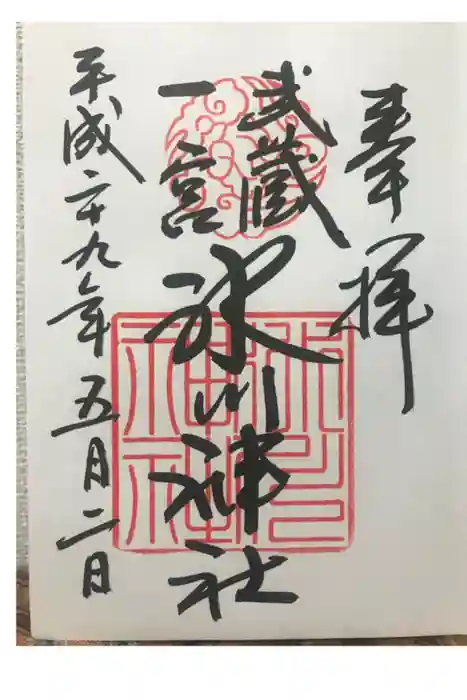 奉拝
武蔵
一宮
氷川神社
平成二十九年五月二日
氷川神社